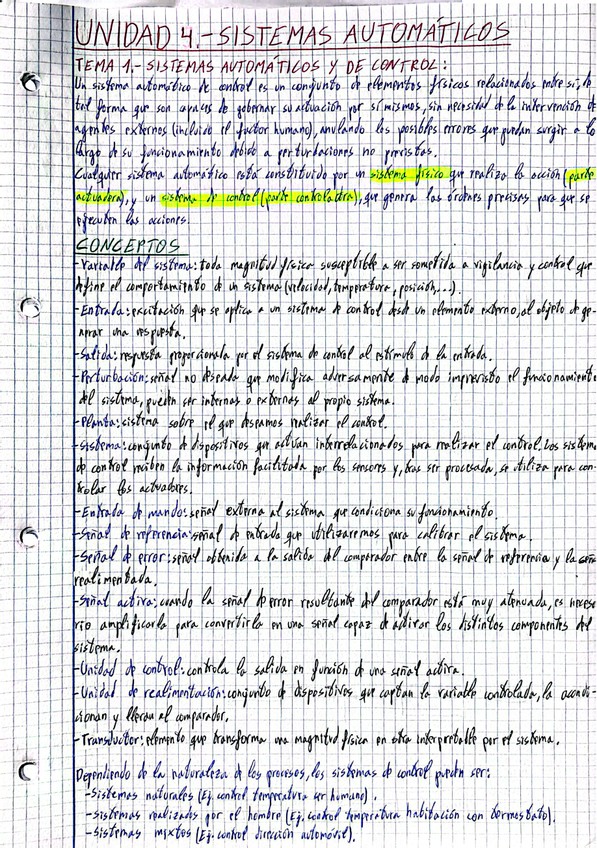 UNIDAD 4.-SISTEMAS AUTOMÁTICOS
TEMA 1.- SISTEMAS AUTOMÁTICOS Y DE CONTROL:
Un sistema automático de control es un conjunto de elementos físicos relacionados entre sí, de
tal forma que son capaces de gobernar su actuación por sí mismos, sin necesidad de la intervención de
agentes externos (incluido el factor humano), anulando los posibles errores que puedan surgir a lo
largo de su funcionamiento debido a perturbaciones no previstas.
Cualquier sistema automático está constituido por un sistema físico que realiza la acción (parte
actuadora), y un sistema de control (parte controladora), que genera las órdenes precisas para que se
ejecuten las acciones.
CONCEPTOS
-Variable del sistema: toda magnitud física susceptible a ser sometida a vigilancia y control que
define el comportamiento de un sistema (velocidad, temperatura, posición,...).
-Entrada: excitación que se aplica a un sistema de control desde un elemento externo, al objeto de ge-
nerar una respuesta.
-Salida: respuesta proporcionada por el sistema de control al estímulo de la entrada.
-Perturbación: señal no deseada que modifica adversamente de modo imprevisto el funcionamiento
del sistema, pueden ser internas o externas al propio sistema.
-Planta: sistema sobre el que deseamos realizar el control.
-Sistema: conjunto de dispositivos que actúan interrelacionados para realizar el control. Los sistemas
de control reciben la información facilitada por los sensores y, tras ser procesada, se utiliza para con-
trolar los actuadores.
-Entrada de mando: señal externa al sistema que condiciona su funcionamiento.
-Señal de referencia: señal de entrada que utilizaremos para calibrar el sistema.
-Señal de error: señal obtenida a la salida del comparador entre la señal de referencia y la señal
realimentada.
-Señal activa: cuando la señal de error resultante del comparador está muy atenuada, es necesa-
rio amplificarla para convertirla en una señal capaz de activar los distintos componentes del
sistema.
-Unidad de control: controla la salida en función de una señal activa.
-Unidad de realimentación: conjunto de dispositivos que captan la variable controlada, la acondi-
cionan y llevan al comparador.
-Transductor: elemento que transforma una magnitud física en otra interpretable por el sistema.
Dependiendo de la naturaleza de los procesos, los sistemas de control pueden ser:
-Sistemas naturales (Ej. control temperatura ser humano).
-Sistemas realizados por el hombre (Ej. control temperatura habitación con termostato).
-Sistemas mixtos (Ej. control dirección automóvil).